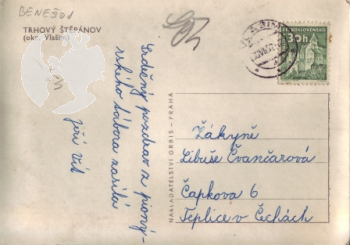 BENEŠOV
TRHOVÝ ŠTĚPÁNOV
(okr. Vlašim)
Srdečný pozdrav z pioný-
rského tábora zasílá
Jiří Vít
NAKLADATELSTVÍ ORBIS - PRAHA
ČESKOSLOVENSKO
30h
Žákyně
Libuše Čvančarová
Čapkova 6
Teplice v Čechách